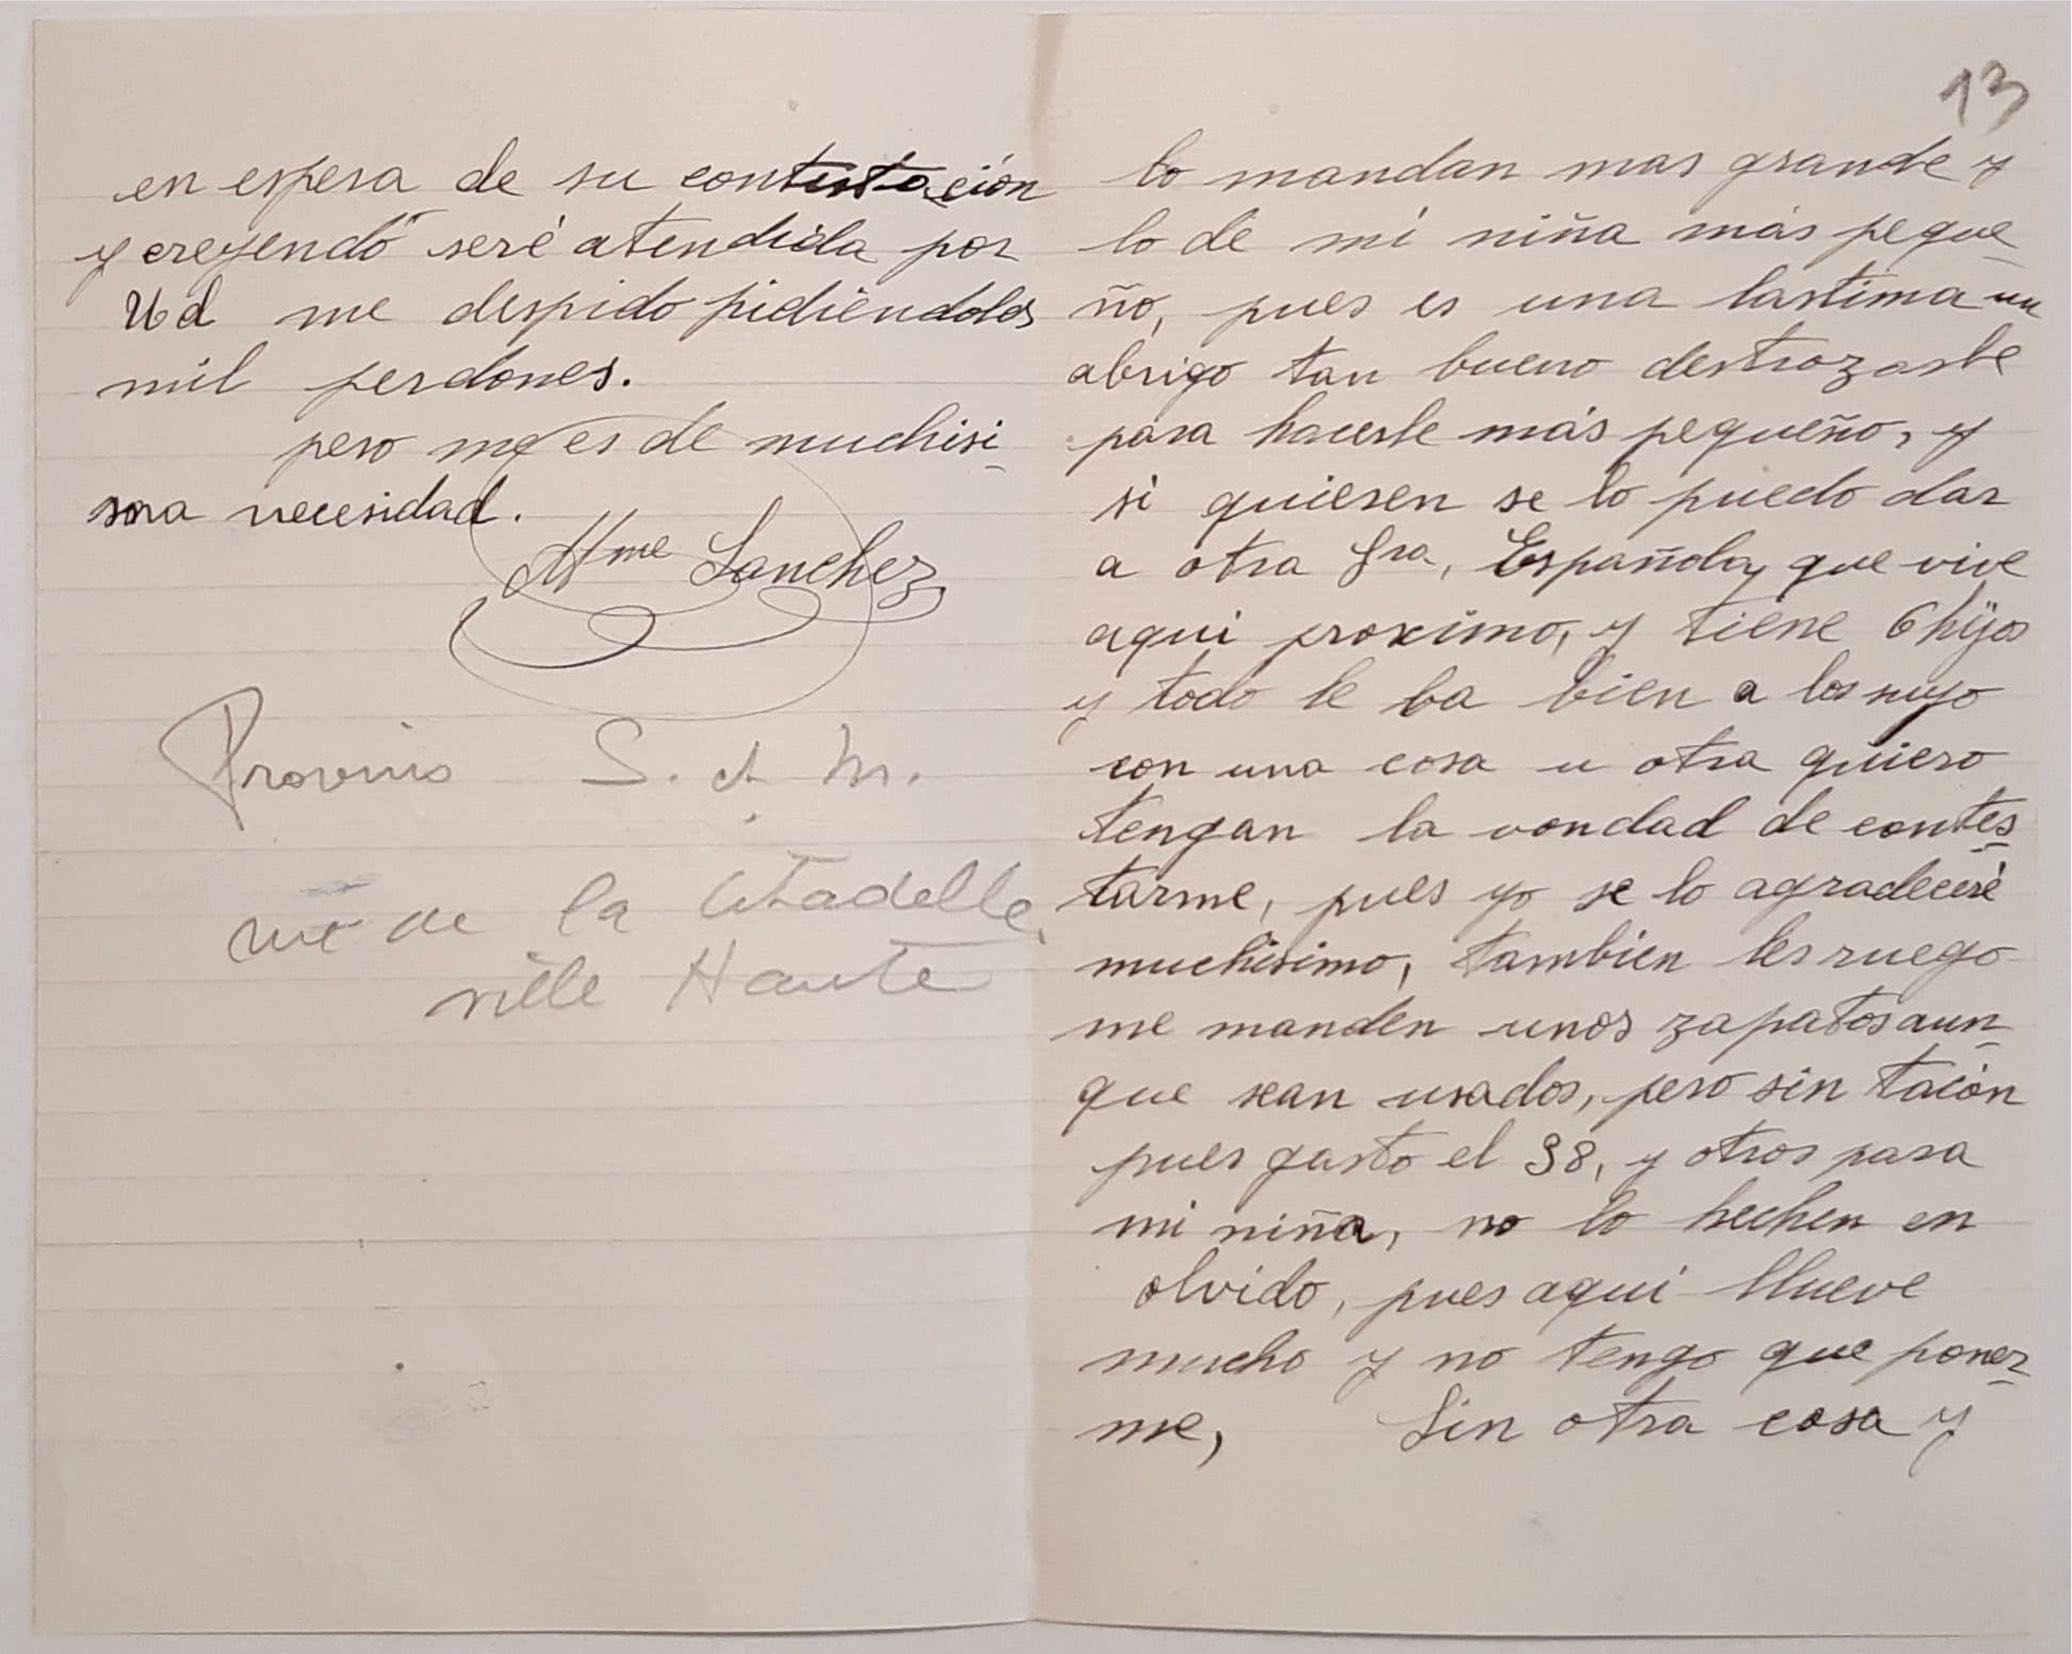 13
lo mandan mas grande y
lo de mi niña más peque-
ño, pues es una lastima un
abrigo tan bueno destrozarle
para hacerle más pequeño, y
si quieren se lo puedo dar
a otra Sra, Española, que vive
aqui proximo, y tiene 6 hijos
y todo le ba bien a los suyo
con una cosa u otra quiero
tengan la vondad de contes-
tarme, pues yo se lo agradeceré
muchisimo, tambien les ruego
me manden unos zapatos aun-
que sean usados, pero sin tacón
pues gasto el 38, y otros para
mi niña, no lo hechen en
olvido, pues aqui llueve
mucho y no tengo que poner-
me, Sin otra cosa y
en espera de su contestación
y creyendo seré atendida por
Ud me despido pidiéndoles
mil perdones.
pero me es de muchisi-
ma necesidad.
Mme Sanchez
Provins S. et M.
rue de la Citadelle
ville Haute